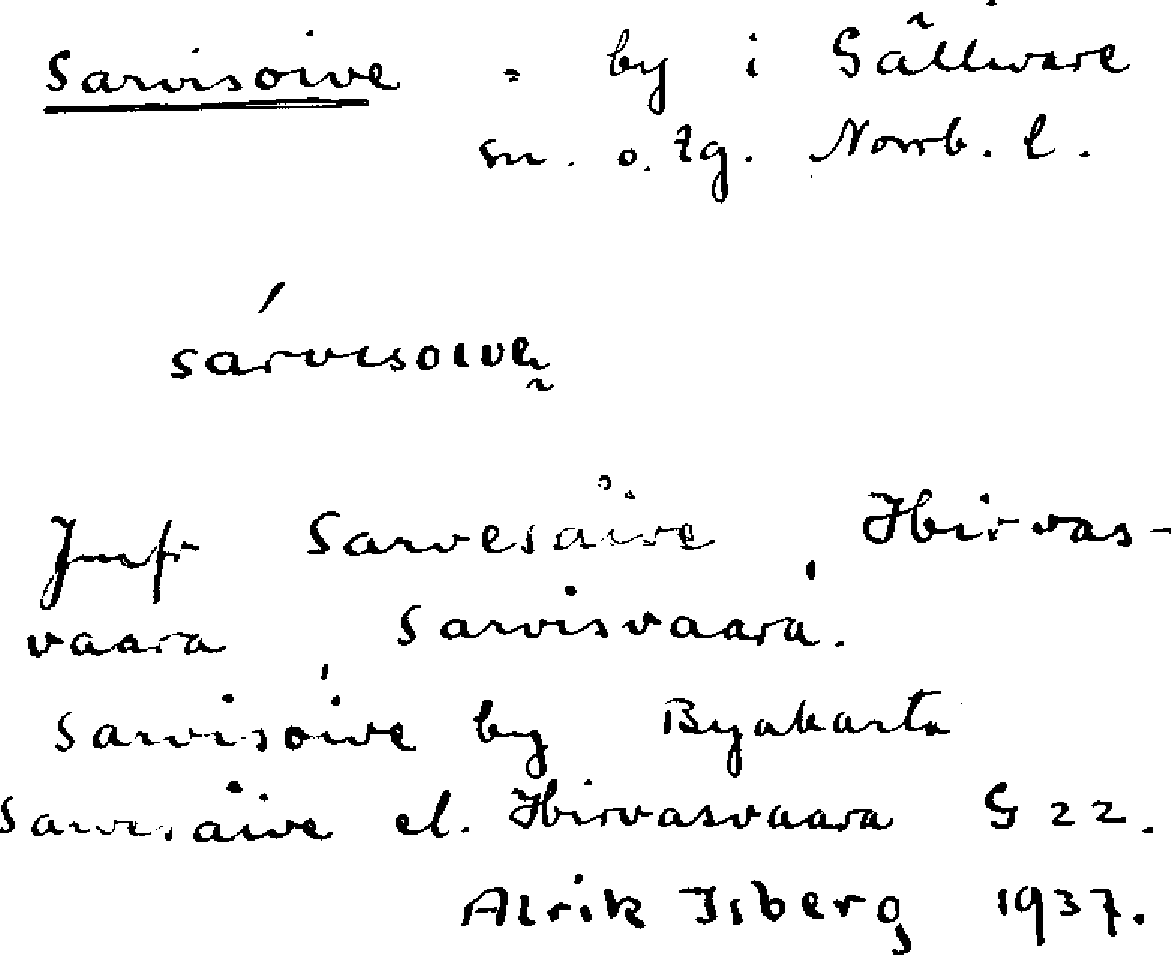 Sarvisoive = by i Gällivare
sn. o. tg. Norrb. l.
sárvisoivę
Jmfr Sarvesåive, Hirvas-
vaara, Sarvisvaara.
Sarvisoive by Byakarta
Sarvesåive el. Hirvasvaara G 22.
Alrik Isberg 1937.